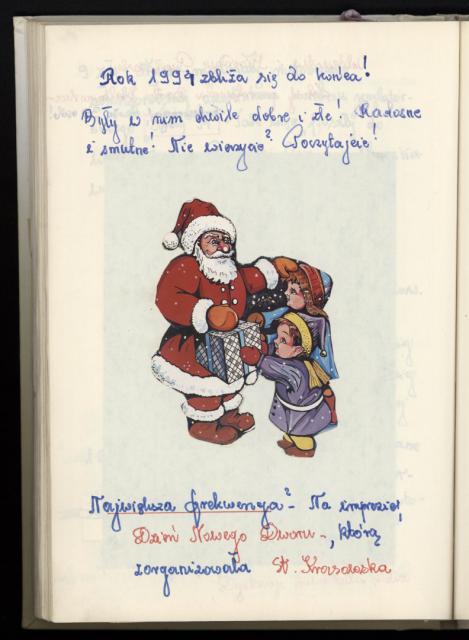 Rok 1994 zbliża się do końca!
Były w nim chwile dobre i złe! Radosne
i smutne! Nie wierzycie? Poczytajcie!
Największa frekwencja? - Na imprezie,
Dzień Nowego Dworu -, którą
zorganizowała St. Krasowska